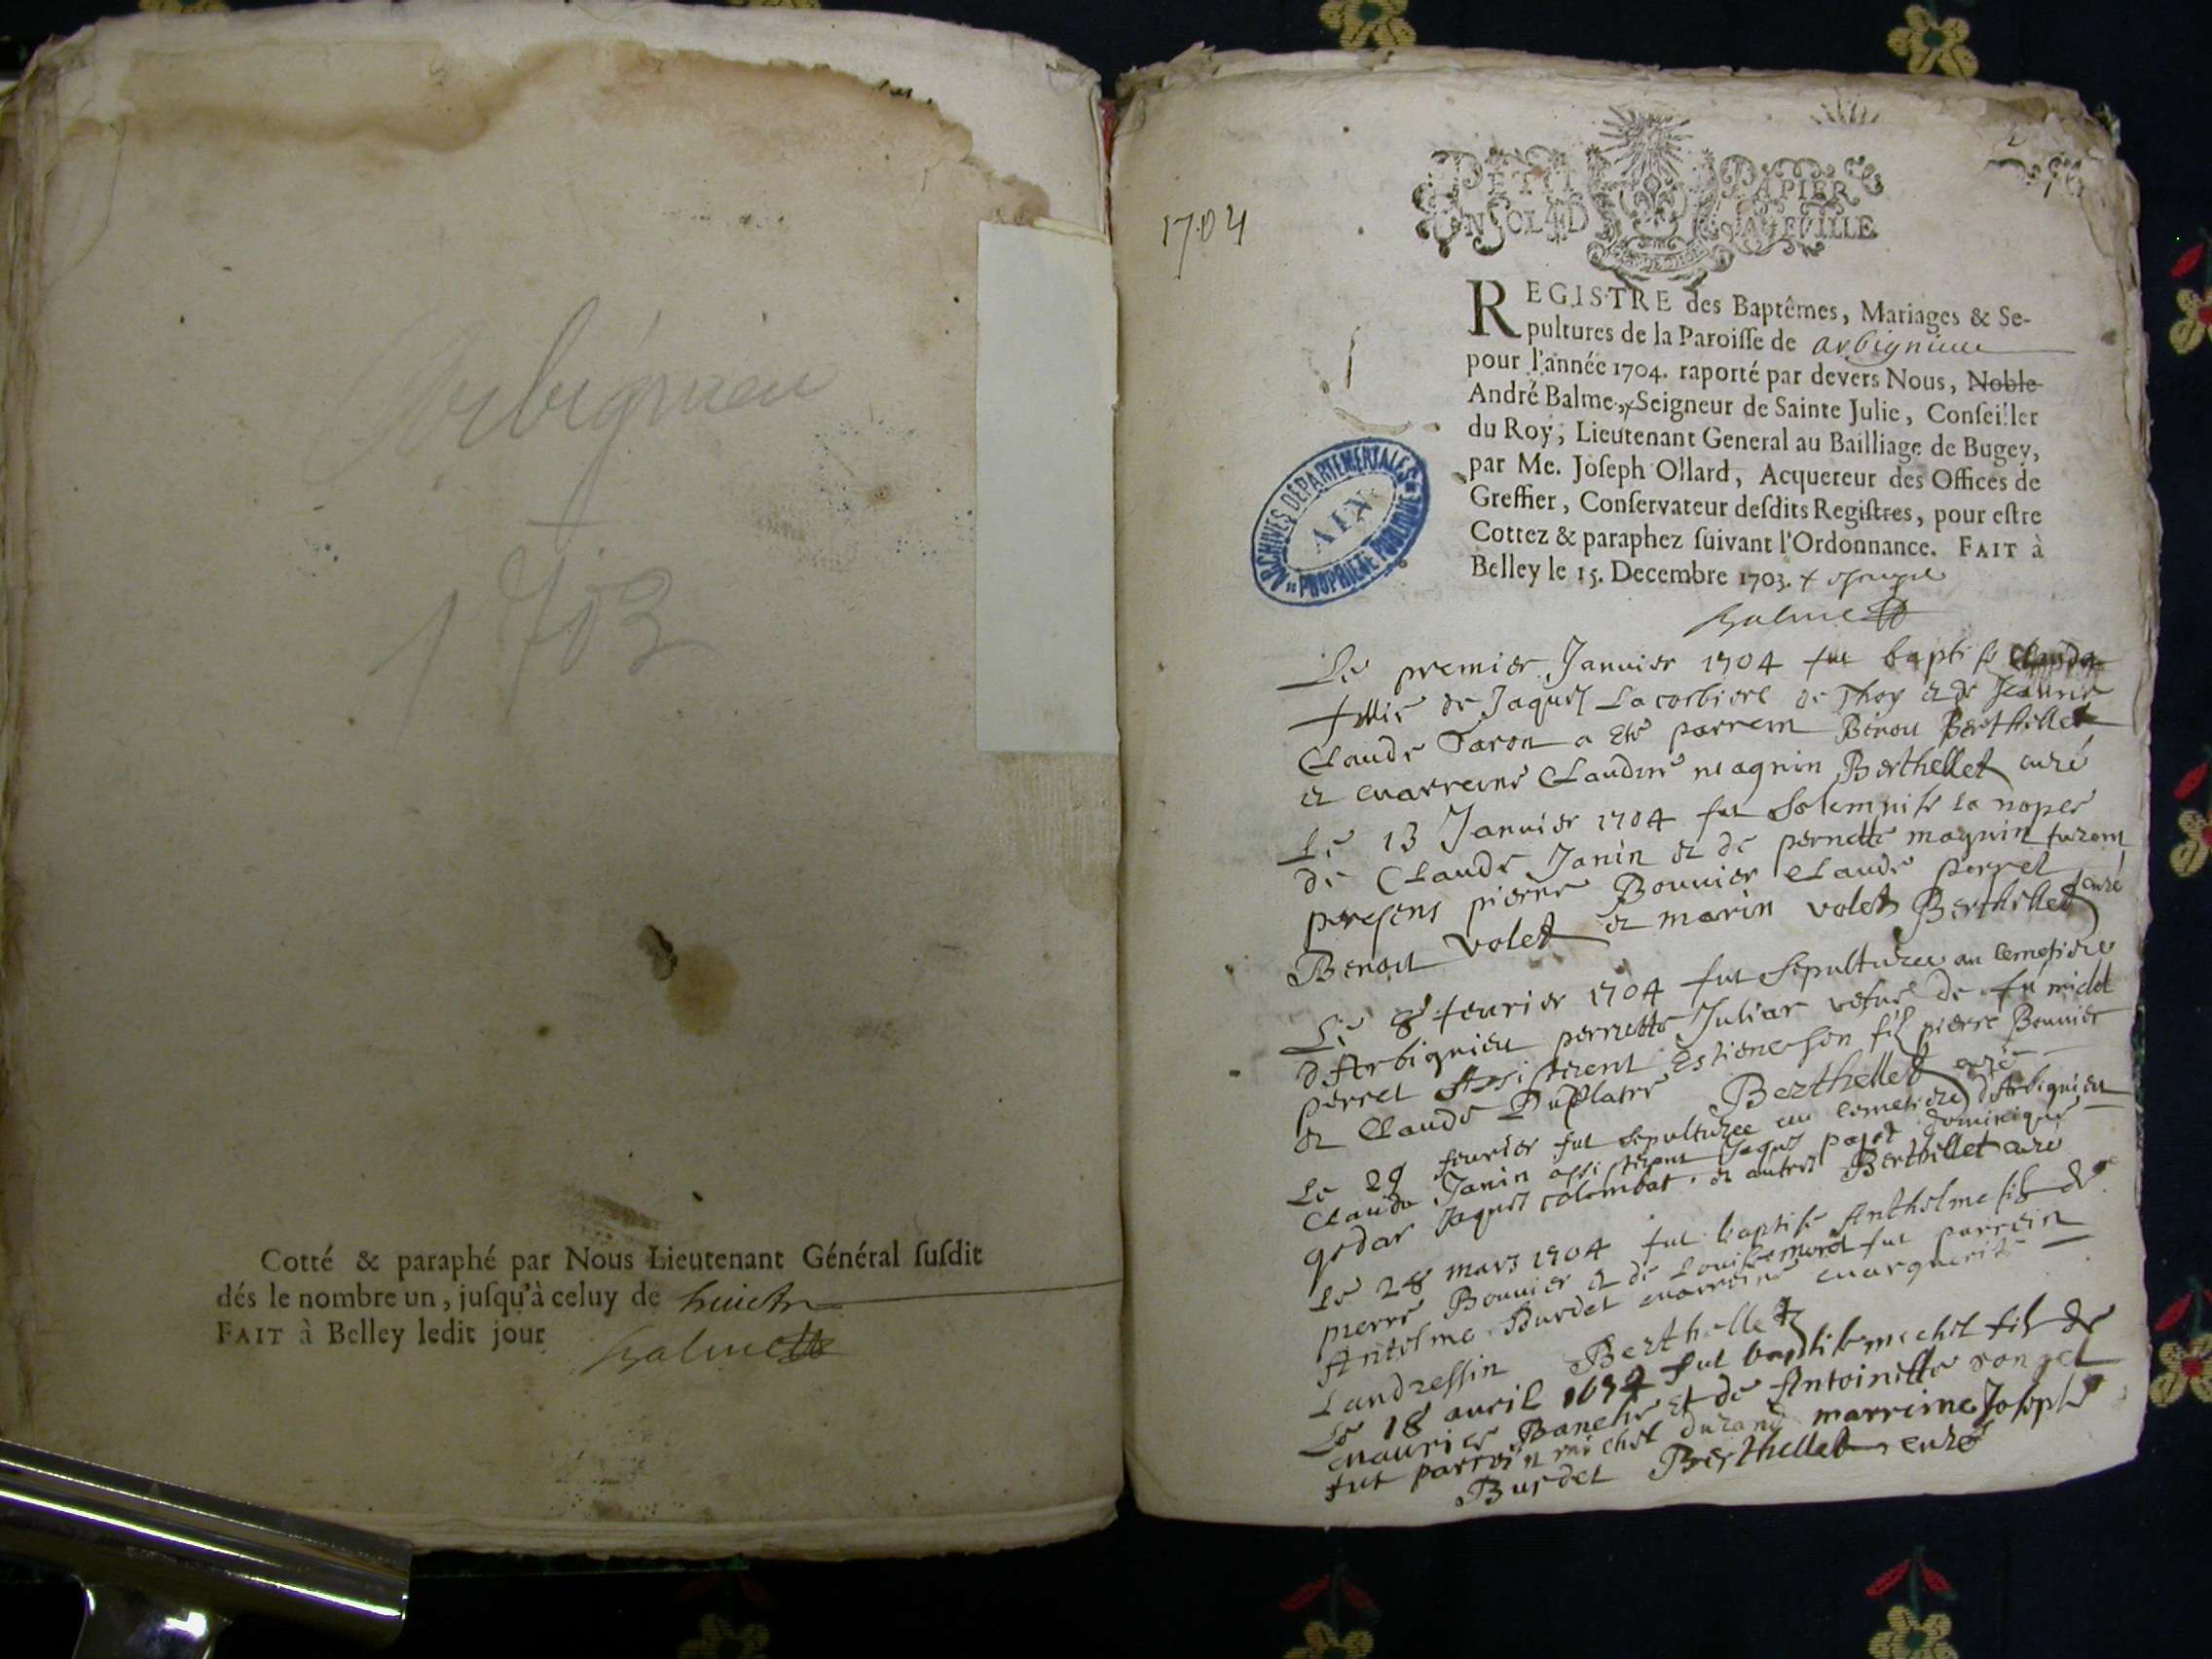 Arbignieu
1703
Cotté & paraphé par Nous Lieutenant Général ſuſdit
dés le nombre un, juſqu'à celuy de huict
FAIT à Belley ledit jour
Balme
1704
PETIT PAPIER
UN SOL 4 D LA FEVILLE
REGISTRE des Baptêmes, Mariages & Se-
pultures de la Paroiſſe de arbignieu
pour l'année 1704. raporté par devers Nous, Noble
André Balme, Seigneur de Sainte Julie, Conſeiller
du Roy, Lieutenant General au Bailliage de Bugey,
par Me. Joſeph Ollard, Acquereur des Offices de
Greffier, Conſervateur deſdits Regiſtres, pour eſtre
Cottez & paraphez ſuivant l'Ordonnance. FAIT à
Belley le 15. Decembre 1703.
Balme
ARCHIVES DÉPARTEMENTALES
AIN
PROPRIÉTÉ PUBLIQUE
Le premier Januier 1704 fut baptisé
fillie de Jaques Lacorbiere de Thoy et de Jeanne
Claude a été parrein Benoit Berthellet
et marreine Claudine magnin Berthellet curé
Le 13 Januier 1704 fut Solemnisé la nopce
de Claude Janin et de pernette magnin furent
presens pierre Bouuier Claude perret
Benoit volet et marin volet Berthellet curé
Le 8 feurier 1704 fut sepulturee au cemetiere
d'Arbignieu pernette Juliar vefue de fu midet
perret Assisterent Estiene son fils pierre Bouuier
et Claude Duplatre Berthellet curé
Le 29 feurier fut sepulturee au cemetiere d'Arbignieu
Clauda Janin assisterent Jaques pajet dominique
godar Jaques colombat et autres Berthellet curé
Le 28 mars 1704 fut baptisé Anthelme fils de
pierre Bouuier et de Louise moret fut parrein
Antelme Burdet marreine marguerite
Landressin Berthellet
Le 18 auril 1694 fut baptisé michel fils de
maurice Banche et de Antoinette
fut parrein michel durand marreine Josephe
Burdet Berthellet curé